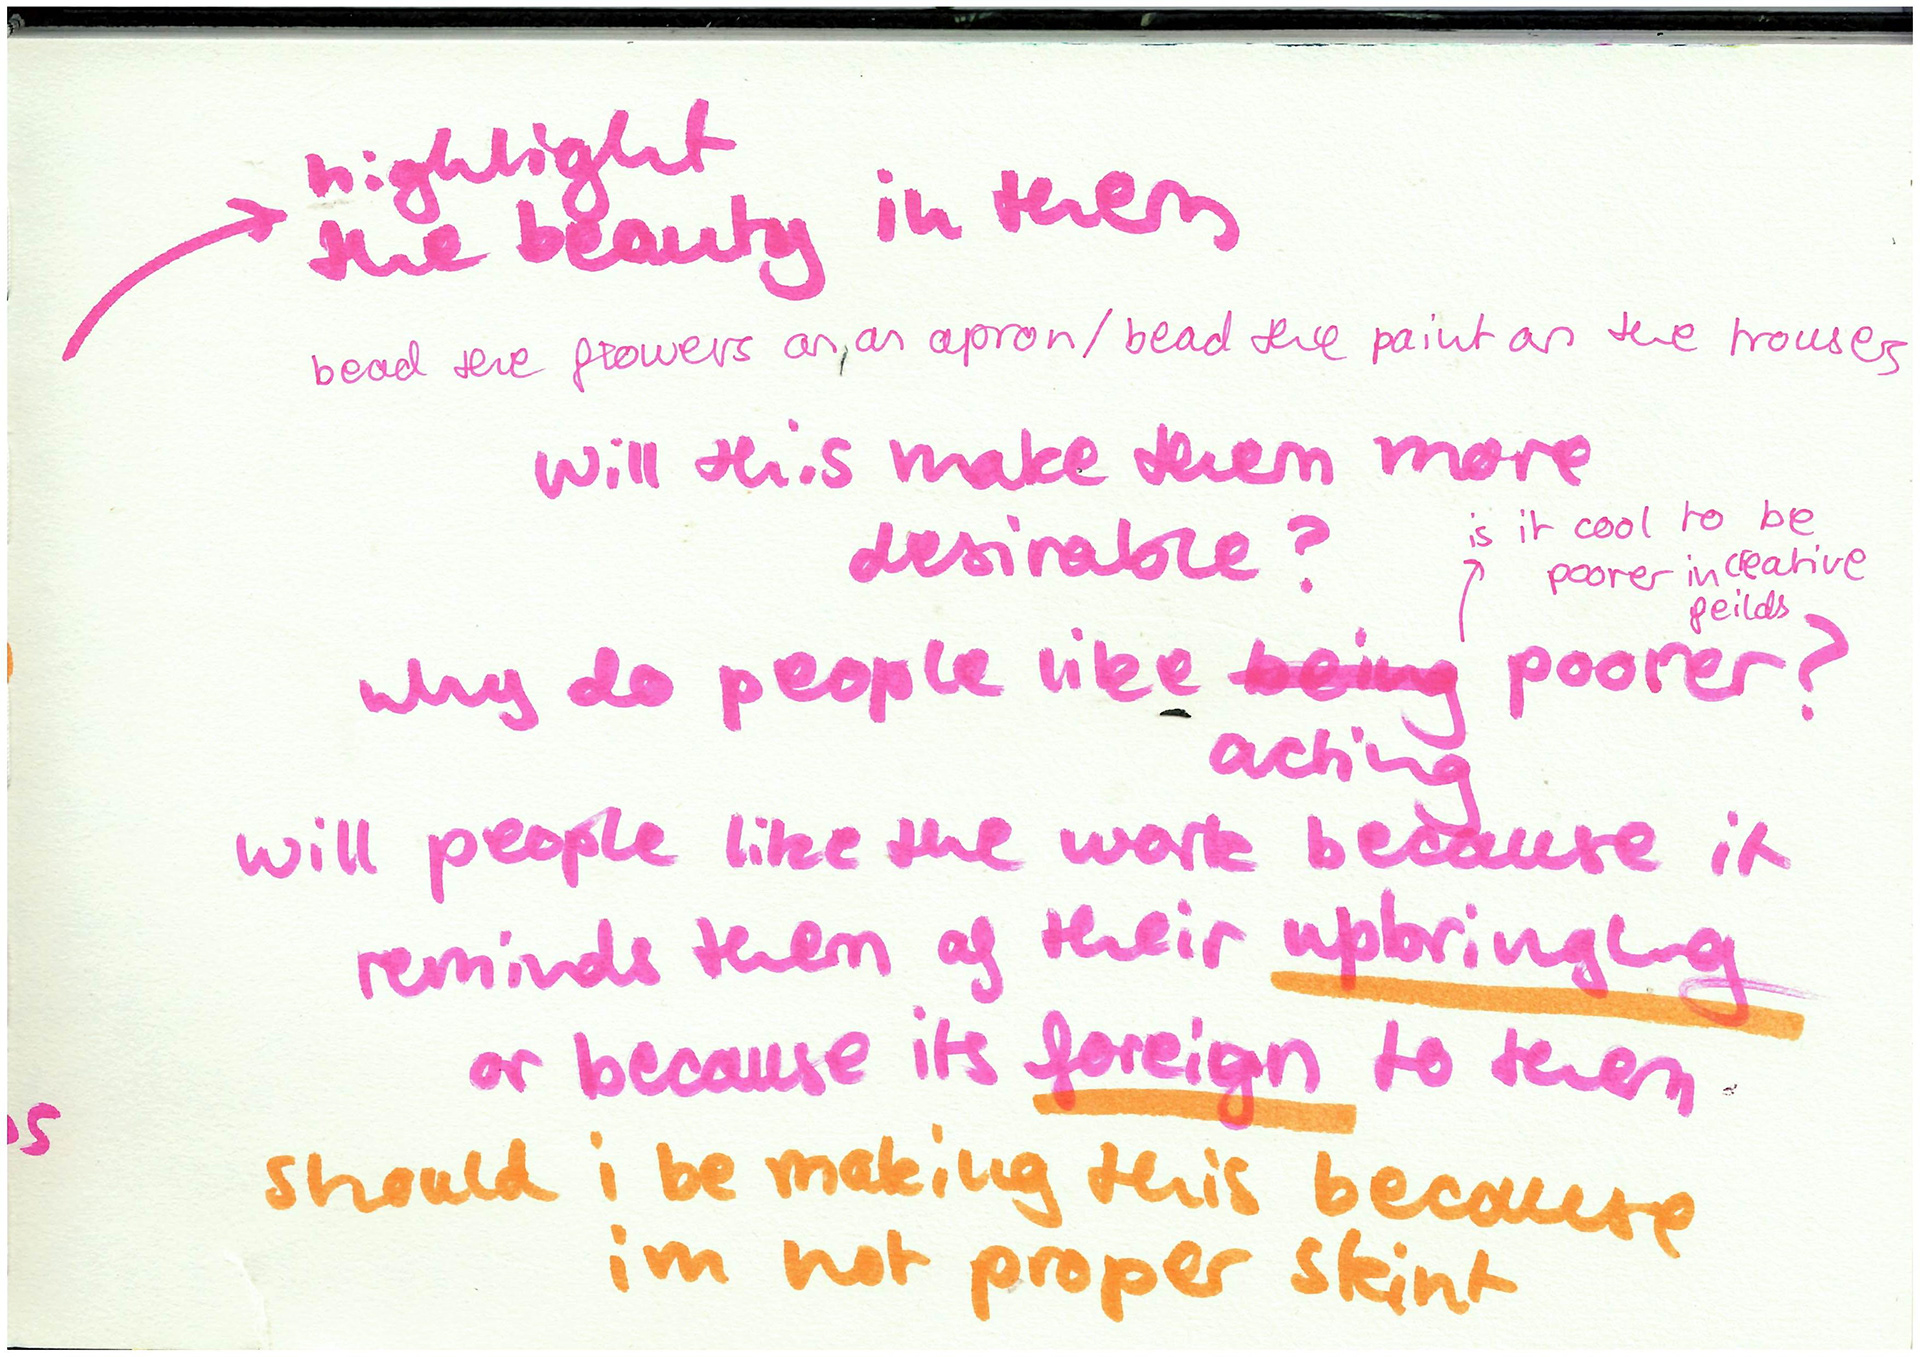 highlight
the beauty in them
bead the flowers on an apron/bead the paint on the trousers
will this make them more
desirable?
is it cool to be
poorer in creative
feilds
why do people like being poorer?
acting
will people like the work because it
reminds them of their upbringing
or because its foreign to them
should i be making this because
im not proper skint